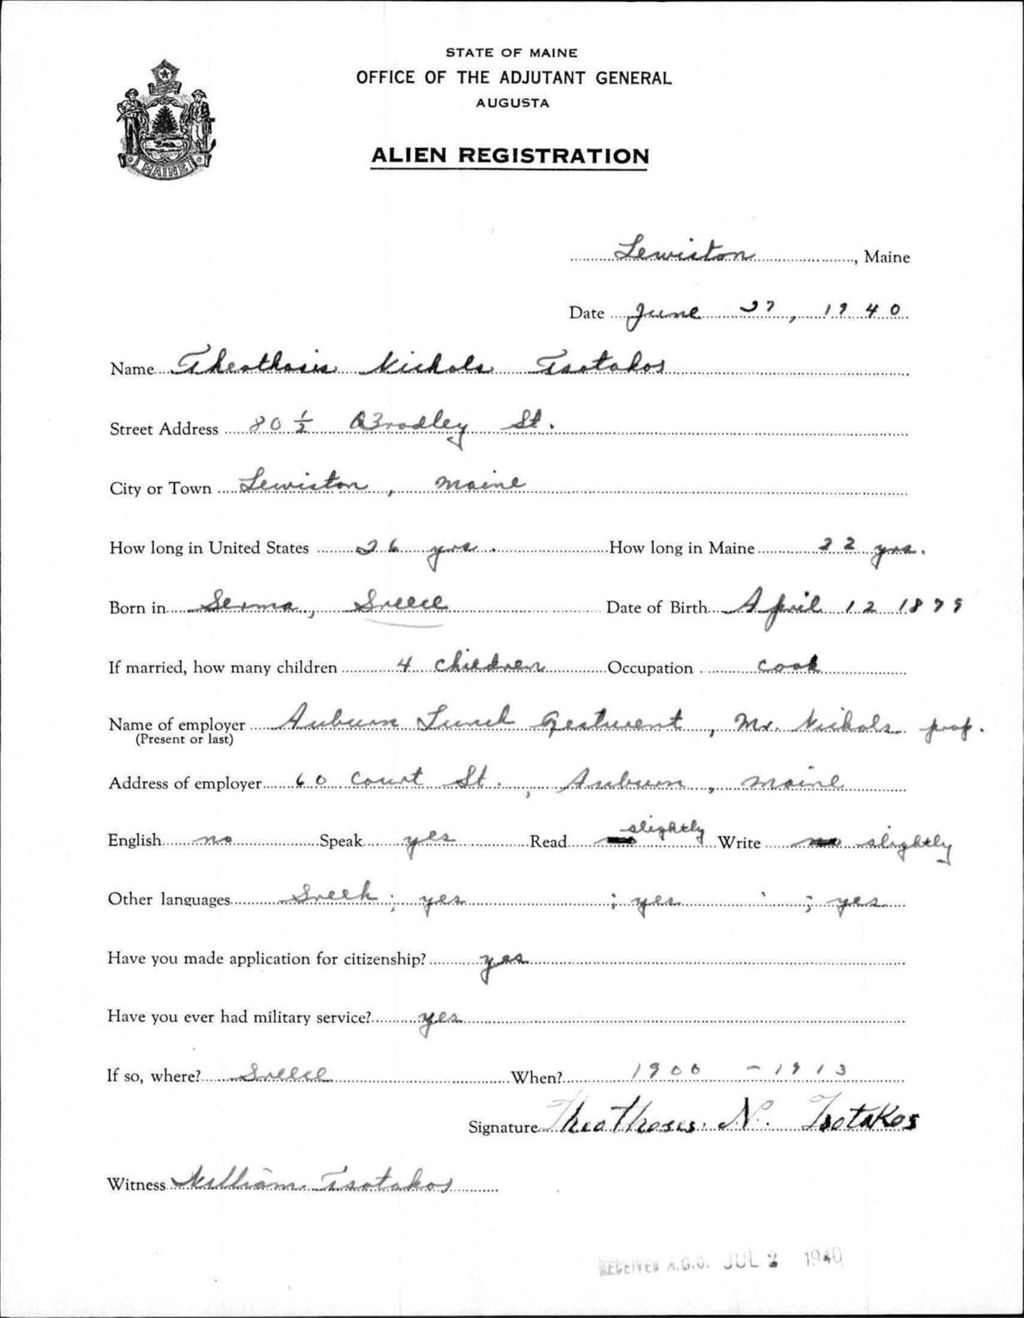 STATE OF MAINE
OFFICE OF THE ADJUTANT GENERAL
AUGUSTA
ALIEN REGISTRATION
MAINE
Lewiston, Maine
Date June 27, 1940
Name Theothosis Nichols Tsotakos
Street Address 80 1/2 Bradley St.
City or Town Lewiston, Maine
How long in United States 26 yrs. How long in Maine 22 yrs.
Born in Serma, Greece Date of Birth April 12 1879
If married, how many children 4 children Occupation cook
Name of employer Auburn Lunch Resturent, Mr. Nichols prop.
(Present or last)
Address of employer 60 Court St., Auburn, Maine
English no Speak yes Read slightly Write slightly
Other languages Greek; yes ; yes ; yes
Have you made application for citizenship? yes
Have you ever had military service? yes
If so, where? Greece When? 1906 - 1913
Signature Theothoses. N. Tsotakos
Witness William Tsotakos
RECEIVED A.G.O. JUL 2 1940